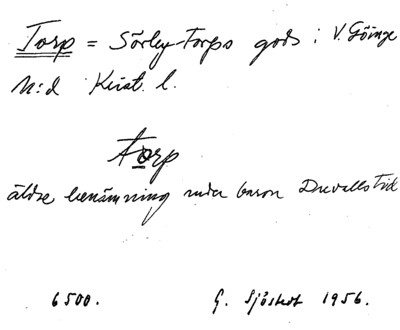 Torp = Sörby-Torps gods i V. Göinge
h:d Krist. l.
torp
äldre benämning under baron Duvalls tid
6500. G. Sjöstedt 1956.